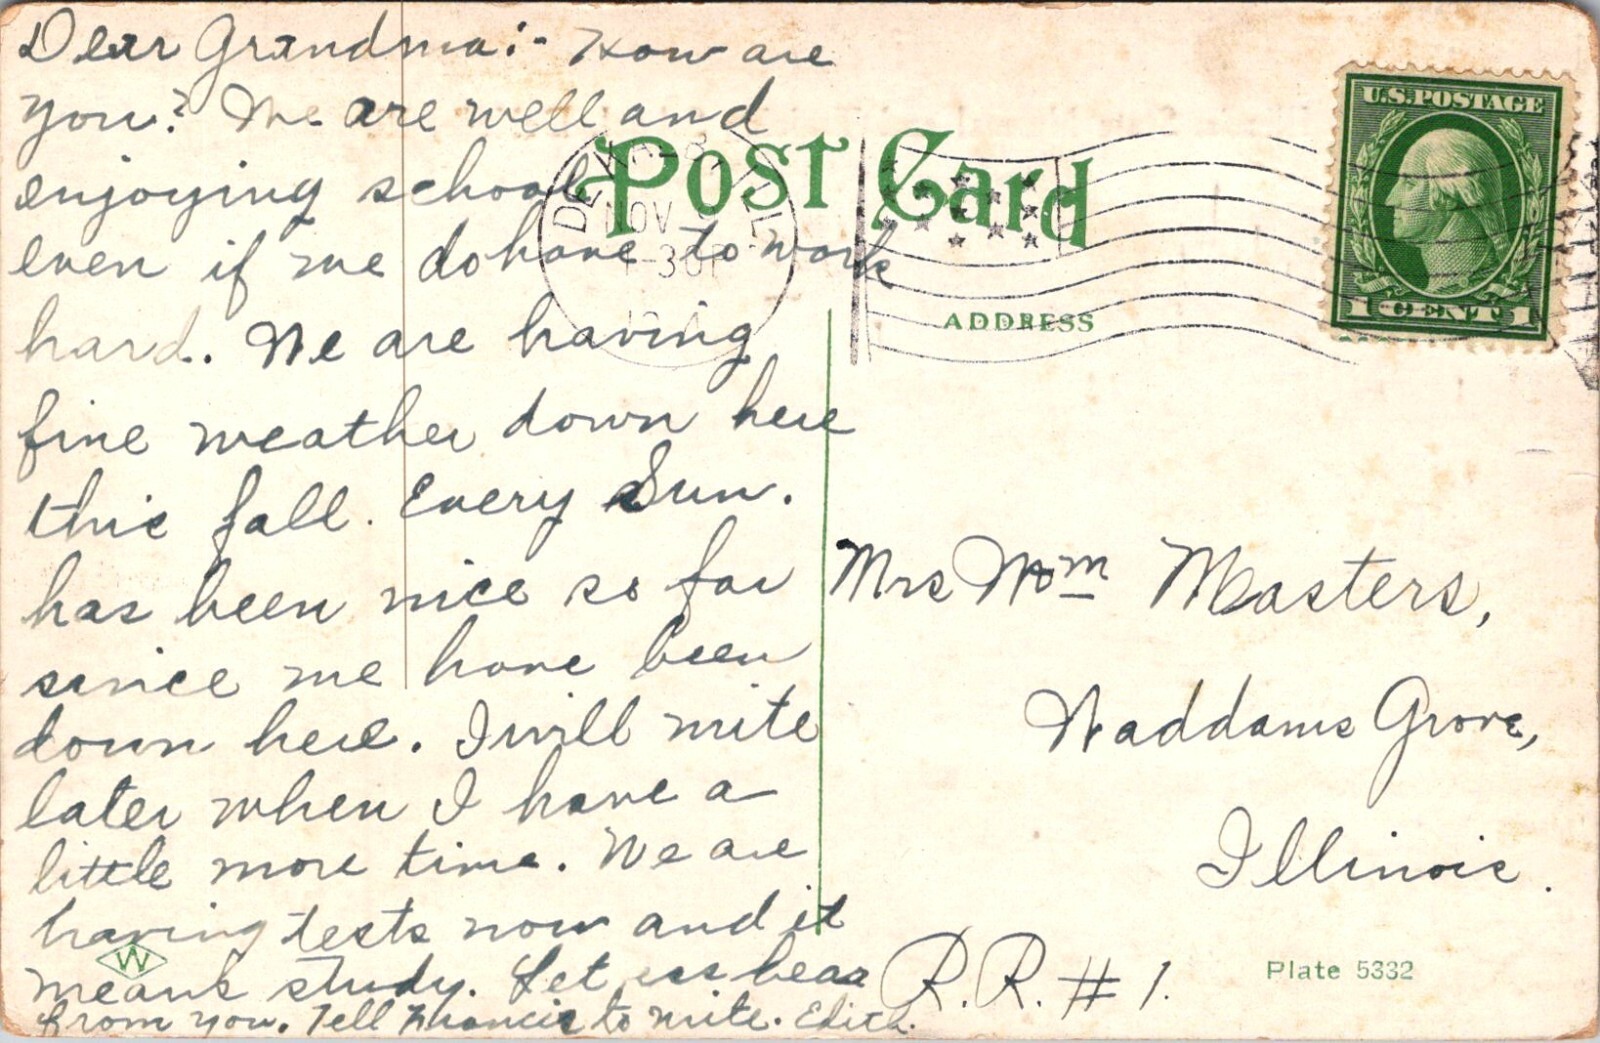 Dear Grandma:- How are
you? We are well and
enjoying school
even if we do have to work
hard. We are having
fine weather down here
this fall. Every Sun.
has been nice so far
since we have been
down here. I will write
later when I have a
little more time. We are
having tests now and it
means study. Let us hear
from you. Tell Francis to write. Edith.
POST CARD
DEKALB, ILL.
NOV
-30P
ADDRESS
U.S. POSTAGE
1 CENT 1
Mrs Wm Masters,
Waddams Grove,
Illinois.
R.R. # 1.
Plate 5332
W